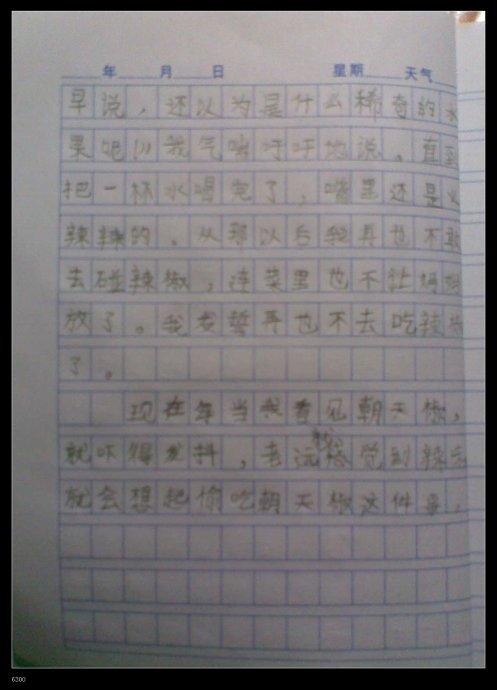 年 月 日 星期 天气
早说，还以为是什么稀奇的水
果呢！！！我气嘟吁吁地说。直到
把一杯水喝完了，嘴里还是火
辣辣的。从那以后我再也不敢
去碰辣椒，连菜里也不让妈妈
放了。我发誓再也不去吃辣椒
了。
现在每当我看见朝天椒，
就吓得发抖，老远我感觉到辣
就会想起偷吃朝天椒这件事，
6300